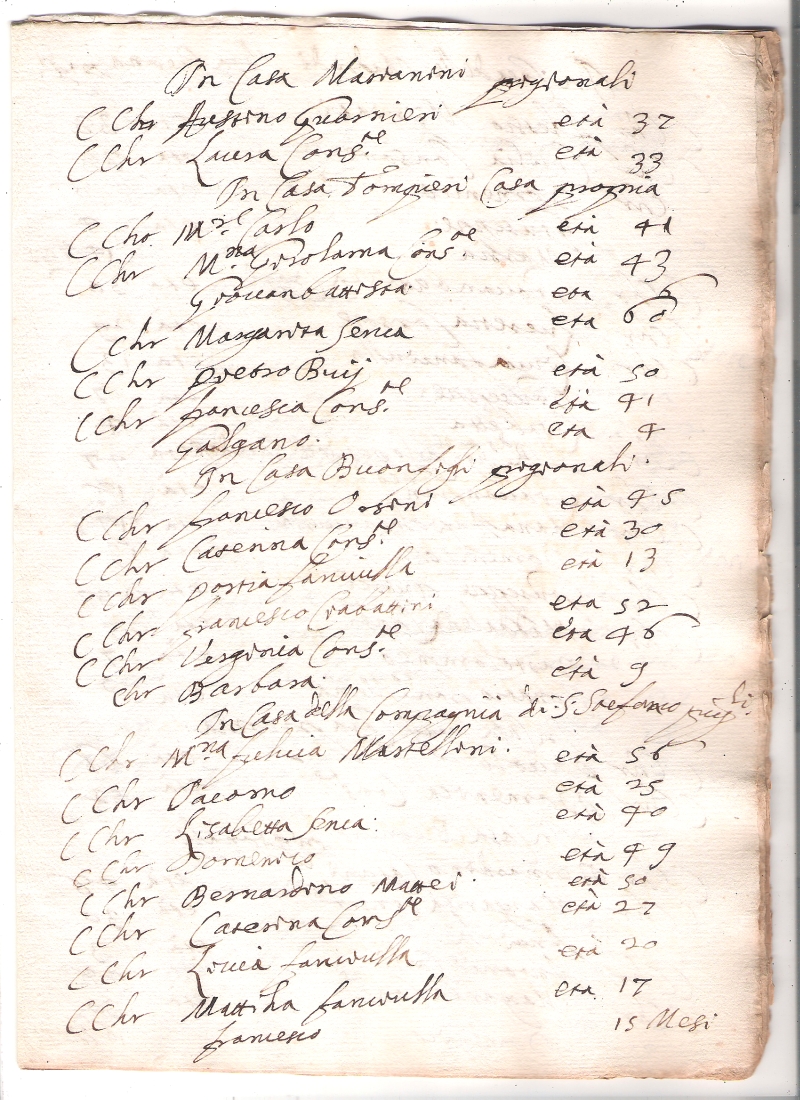 In Casa Marianini pigionali
C Chr Austino Guarnieri età 37
C Chr Laura Cons.te età 33
In Casa Pompieri Casa propria
C Chr M.r Carlo età 41
C Chr M.na Girolama Cons.te età 43
Giovanbattista età 6
C Chr Margarita serva età 60
C Chr Pietro Buij età 50
C Chr francesca Cons.te età 41
Galgano. età 4
In Casa pigionali.
C Chr francesco Orsini età 45
C Chr Caterina Cons.te età 30
C Chr Portia fanciulla età 13
C Chr francesco Ciabattini età 52
C Chr Verginia Cons.te età 46
Chr Barbara. età 9
In Casa della Compagnia di S. Stefano pig.li
C Chr M.na felicia Martelloni. età 56
C Chr Iacomo età 25
C Chr Lisabetta serva. età 40
C Chr Domenico età 49
C Chr Bernardino Mattei età 50
C Chr Caterina Cons.te età 27
C Chr Lucia fanciulla età 20
C Chr Mattiha fanciulla età 17
francesco 15 Mesi